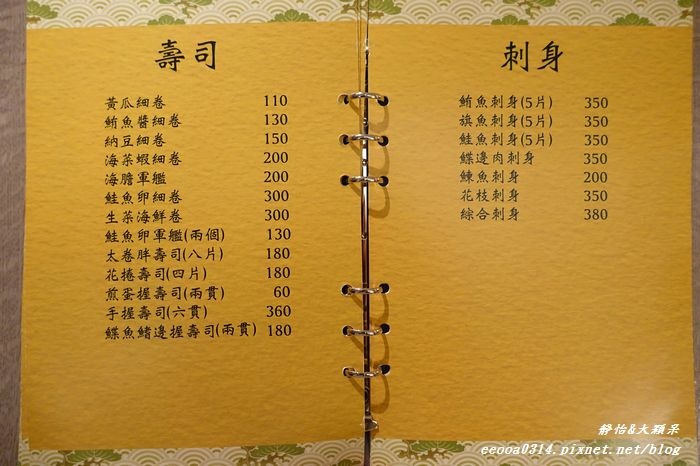 壽司
黃瓜細卷 110
鮪魚醬細卷 130
納豆細卷 150
海菜蝦細卷 200
海膽軍艦 200
鮭魚卵細卷 300
生菜海鮮卷 300
鮭魚卵軍艦(兩個) 130
太卷胖壽司(八片) 180
花捲壽司(四片) 180
煎蛋握壽司(兩貫) 60
手握壽司(六貫) 360
鰈魚鰭邊握壽司(兩貫) 180
刺身
鮪魚刺身(5片) 350
旗魚刺身(5片) 350
鮭魚刺身(5片) 350
鰈邊肉刺身 350
鯟魚刺身 200
花枝刺身 350
綜合刺身 380
靜怡&大顆呆
eeooa0314.pixnet.net/blog